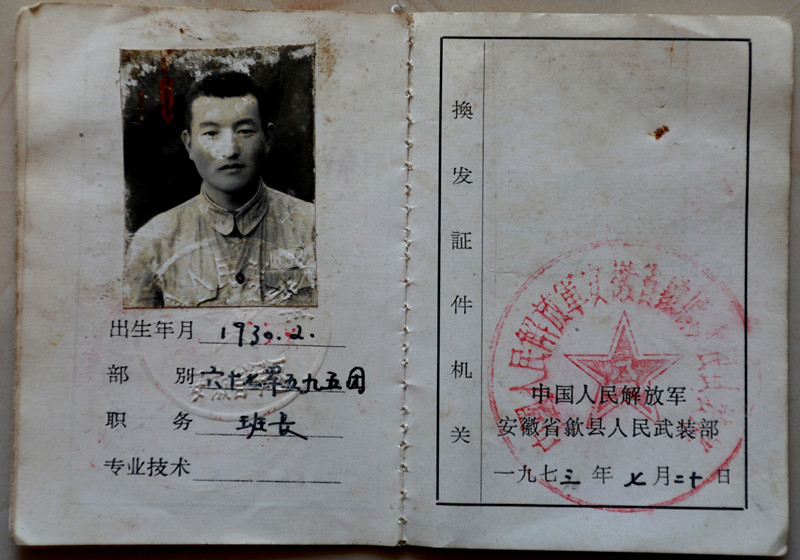 出生年月 1930.2.
部别 六十七军五九五团
职务 班长
专业技术
換发証件机关
中国人民解放军
安徽省歙县人民武装部
一九七三年七月二十日
中国人民解放军安徽省歙县